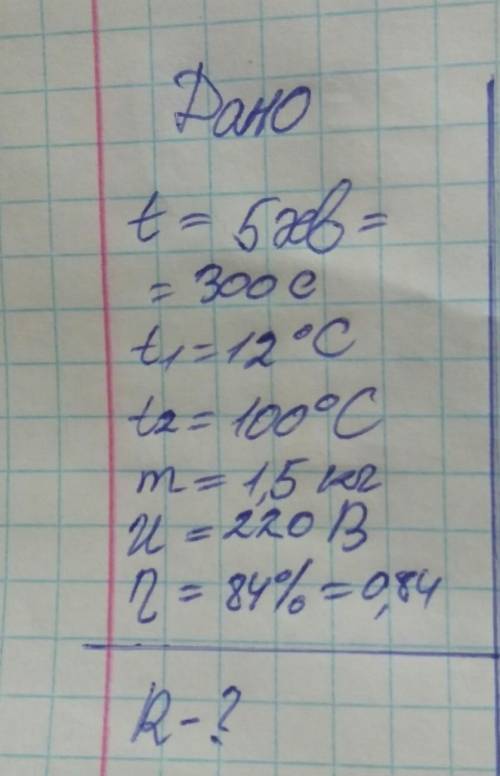 Дано
t = 5хв =
= 300 с
t1 = 12°C
t2 = 100°C
m = 1,5 кг
U = 220 В
η = 84% = 0,84
R - ?